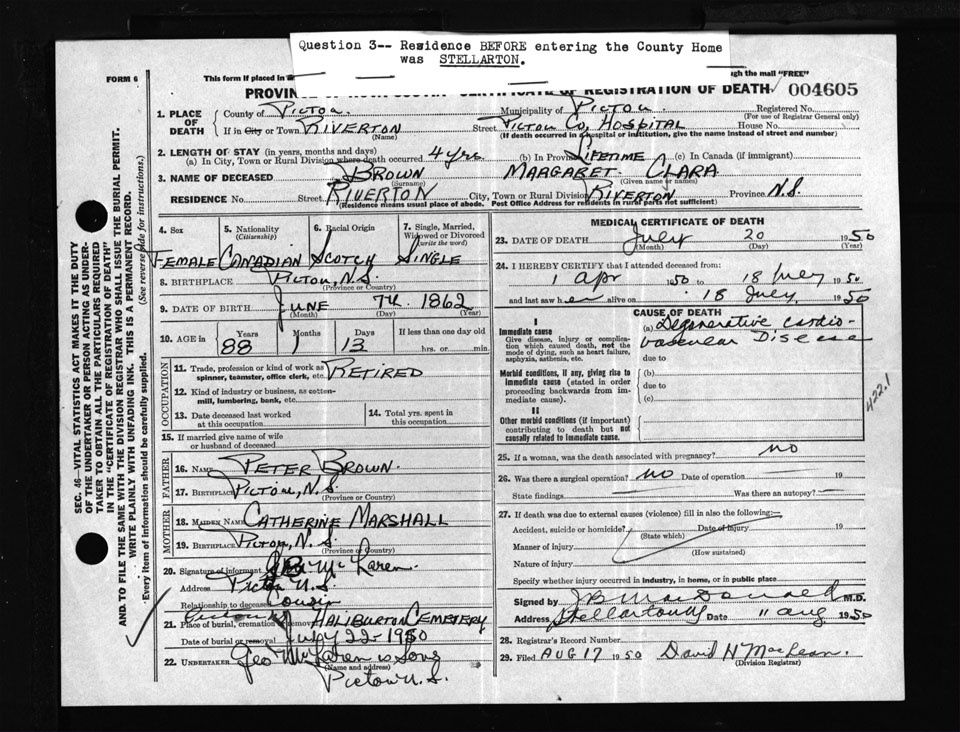 Question 3-- Residence BEFORE entering the County Home
was STELLARTON.
FORM 6
This form if placed in
ugh the mail "FREE"
PROVINCE OF NOVA SCOTIA CERTIFICATE OF REGISTRATION OF DEATH
004605
1. PLACE OF DEATH
County of Pictou.
Municipality of PICTOU
Registered No.
(For use of Registrar General only)
If in City or Town RIVERTON
(Name)
Street PICTOU CO. HOSPITAL
House No.
(If death occurred in a hospital or institution, give the name instead of street and number)
2. LENGTH OF STAY (in years, months and days)
(a) In City, Town or Rural Division where death occurred 4 yrs
(b) In Province LIFETIME
(c) In Canada (if immigrant)
3. NAME OF DECEASED BROWN
(Surname)
MARGARET CLARA
(Given name or names)
RESIDENCE No. Street RIVERTON City, Town or Rural Division RIVERTON Province N.S.
(Residence means usual place of abode. Post Office Address for residences in rural parts not sufficient)
4. Sex
5. Nationality
(Citizenship)
6. Racial Origin
7. Single, Married, Widowed or Divorced
(write the word)
FEMALE CANADIAN SCOTCH SINGLE
8. BIRTHPLACE PICTOU, N.S.
(Province or Country)
9. DATE OF BIRTH JUNE 7TH 1862
(Month) (Day) (Year)
10. AGE in
Years Months Days If less than one day old
88 1 13 hrs. or min.
OCCUPATION
11. Trade, profession or kind of work as spinner, teamster, office clerk, etc. RETIRED
12. Kind of industry or business, as cotton-mill, lumbering, bank, etc.
13. Date deceased last worked at this occupation
14. Total yrs. spent in this occupation
15. If married give name of wife or husband of deceased
FATHER
16. NAME PETER BROWN
17. BIRTHPLACE PICTOU, N.S.
(Province or Country)
MOTHER
18. MAIDEN NAME CATHERINE MARSHALL
19. BIRTHPLACE PICTOU, N.S.
(Province or Country)
20. Signature of informant McLaren
Address Pictou N.S.
Relationship to deceased Cousin
21. Place of burial, cremation or removal HALIBURTON CEMETERY
Date of burial or removal July 22 1950
22. UNDERTAKER Geo McLaren & Sons
(Name and address)
Pictou N.S.
MEDICAL CERTIFICATE OF DEATH
23. DATE OF DEATH July 20 1950
(Month) (Day) (Year)
24. I HEREBY CERTIFY that I attended deceased from:
1 Apr 1950 to 18 July 1950
and last saw her alive on 18 July 1950
CAUSE OF DEATH
I
Immediate cause
Give disease, injury or complication which caused death, not the mode of dying, such as heart failure, asphyxia, asthenia, etc.
(a) Degenerative cardio-vascular Disease
due to
Morbid conditions, if any, giving rise to immediate cause (stated in order proceeding backwards from immediate cause).
(b)
due to
(c)
II
Other morbid conditions (if important) contributing to death but not causally related to immediate cause.
422.1
25. If a woman, was the death associated with pregnancy? no
26. Was there a surgical operation? no Date of operation 19
State findings Was there an autopsy?
27. If death was due to external causes (violence) fill in also the following:
Accident, suicide or homicide? Date of injury 19
(State which)
Manner of injury
(How sustained)
Nature of injury
Specify whether injury occurred in industry, in home, or in public place
Signed by J B MacDonald M.D.
Address Stellarton NS Date 11 Aug 1950
28. Registrar's Record Number
29. Filed AUG 17 1950 David H MacLean
(Division Registrar)
SEC. 46—VITAL STATISTICS ACT MAKES IT THE DUTY
OF THE UNDERTAKER OR PERSON ACTING AS UNDER-
TAKER TO OBTAIN ALL THE PARTICULARS REQUIRED
IN THE "CERTIFICATE OF REGISTRATION OF DEATH"
AND TO FILE THE SAME WITH THE DIVISION REGISTRAR WHO SHALL ISSUE THE BURIAL PERMIT.
WRITE PLAINLY WITH UNFADING INK. THIS IS A PERMANENT RECORD.
Every item of information should be carefully supplied. (See reverse side for instructions.)